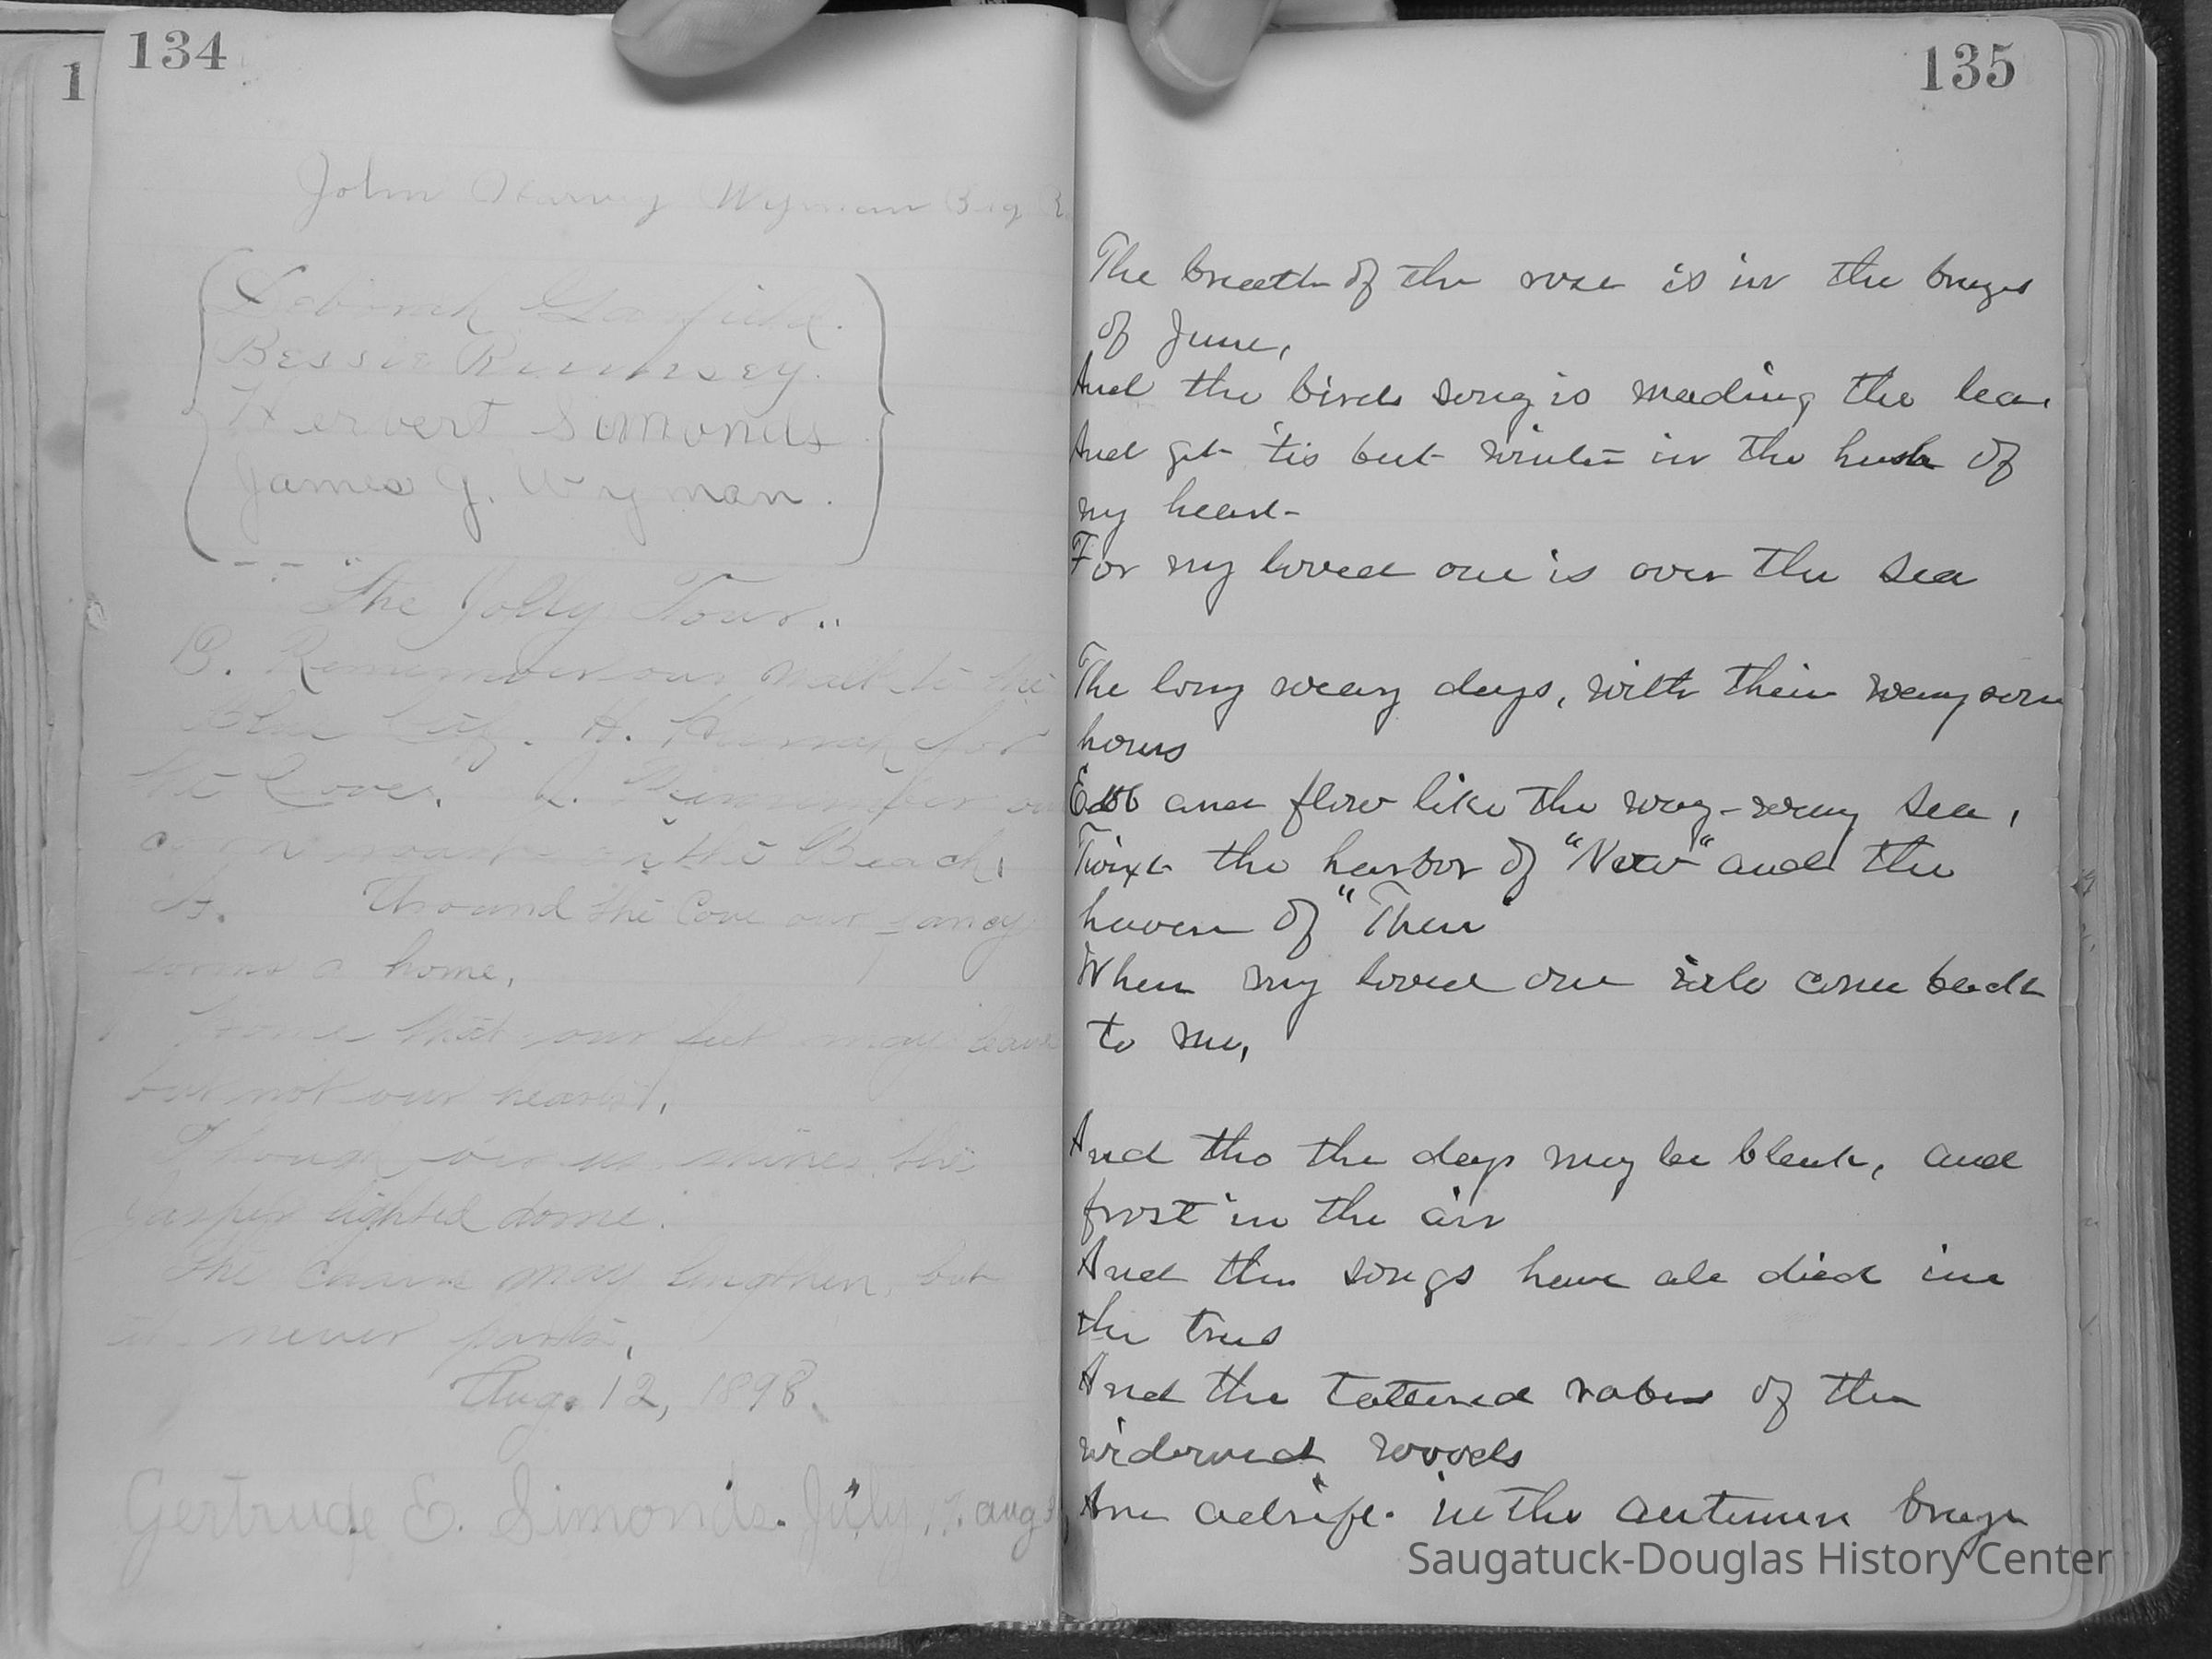 134
John Harvey Wyman Big
Deborah Garfield.
Bessie Rumsey.
Herbert Simonds
James G. Wyman.
"The Jolly Four."
B. Remember our walk to the
Blue City. H. Hurrah for
the Cove. J. Remember our
corn roast on the Beach.
Around the Cove our fancy
forms a home,
home that our feet may leave
but not our hearts,
Though o'er us shines the
jasper lighted dome.
The chain may lengthen, but
it never parts,
Aug. 12, 1898.
Gertrude E. Simonds. July, aug
1
135
The breath of the rose is in the breezes
of June,
And the birds song is mading the lea
And yet 'tis but winter in the hush of
my heart
For my loved one is over the sea
The long weary days, with their weary
hours
Ebb and flow like the way-weary sea,
Twixt the harbor of "Now" and the
haven of "Then"
When my loved one will come back
to me,
And tho the days may be bleak, and
frost in the air
And the songs have all died in
the trees
And the tattered robes of the
widowed woods
Are adrift in the autumn breeze
Saugatuck-Douglas History Center